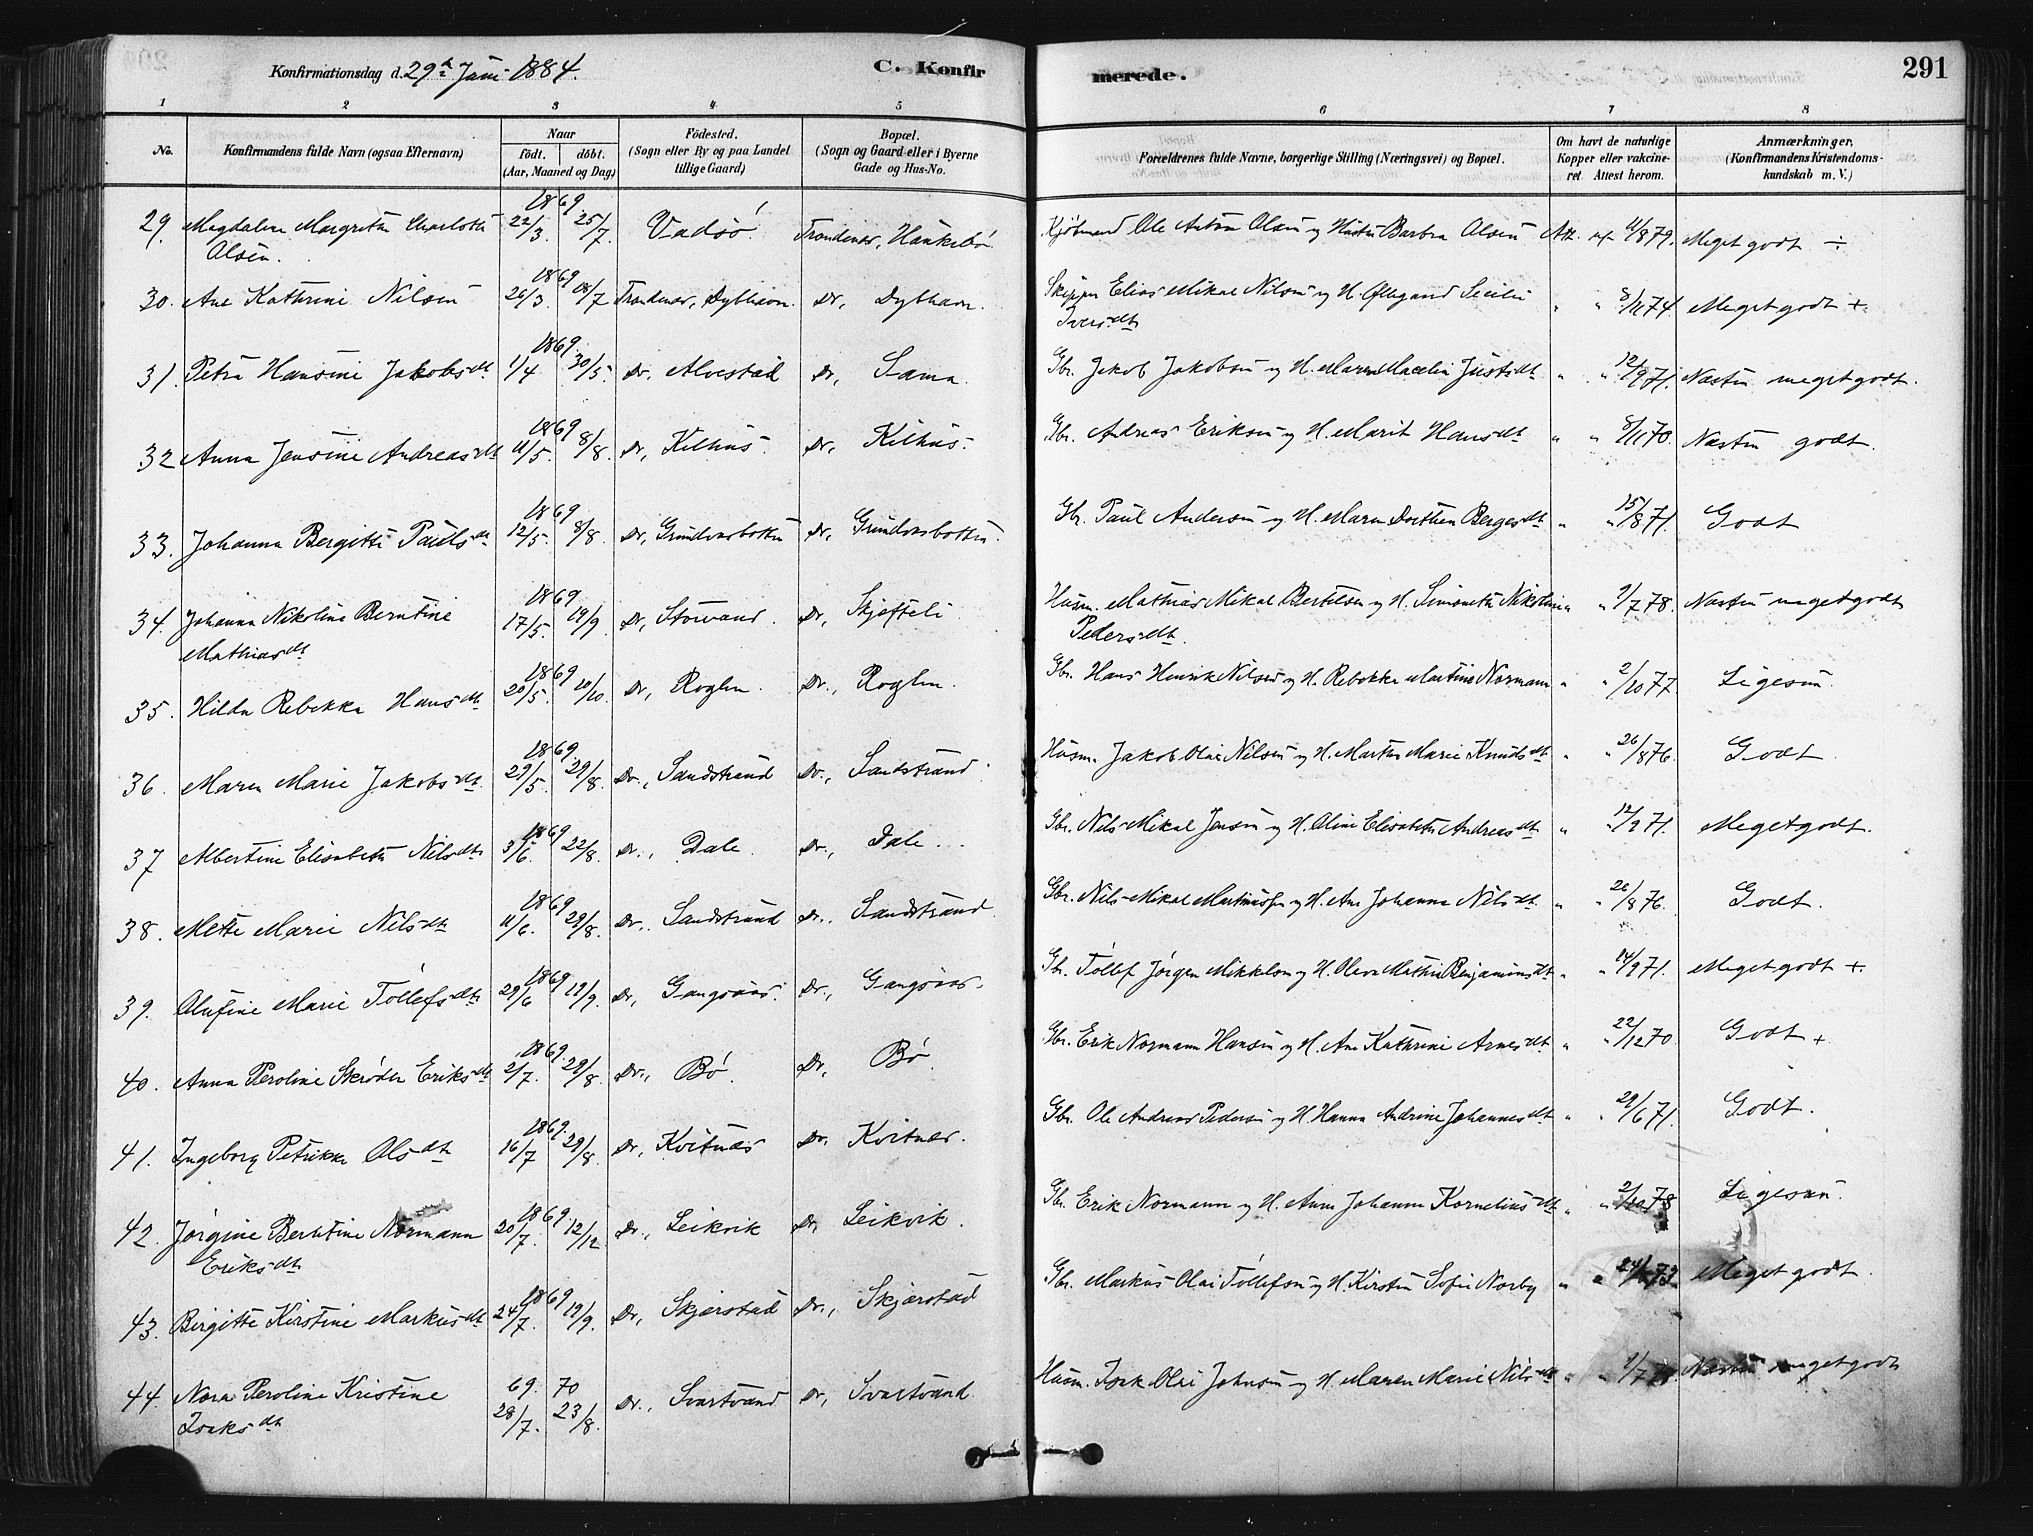 Konfirmationsdag d. 29de Juni 1884.
C. Konfirmerede.
291
1 2 3 4 5 6 7 8
No.
Konfirmandens fulde Navn (ogsaa Efternavn)
Naar
födt. döbt.
(Aar, Maaned og Dag)
Födested.
(Sogn eller By og paa Landet
tillige Gaard)
Bopæl.
(Sogn og Gaard eller i Byerne
Gade og Hus-No.
Forældrenes fulde Navne, borgerlige Stilling (Næringsvei) og Bopæl.
Om havt de naturlige
Kopper eller vakcine-
ret Attest herom.
Anmærkninger,
(Konfirmandens Kristendoms-
kundskab m. V.)
1869
29. Magdalene Margrethe Charlotte 22/3. 25/7. Vadsö. Trondenæs, Haukebö. Kjöbmand Ole Anton Olsen og Hustru Barbra Olsen Att. af 11/8 79. Meget godt ÷
Olsen.
1869
30. Ane Kathrine Nilsen 26/3. 18/7 Trondenæs, Dybhavn. Do, Dybhavn. Skipper Elias Mikal Nilsen og H. Ollegaard Secilie " " 8/11 74. Meget godt +
Iversdtr
1869.
31. Petra Hansine Jakobsdtr 1/4 30/5. Do, Alvestad Do, Sama. Gbr. Jakob Jakobsen og H. Maren Macelie Justsdtr " " 12/9 71. Næsten meget godt.
1869
32 Anna Jensine Andreasdtr 11/5. 8/8. Do, Kilhus. Do, Kilhus. Gbr. Andreas Eriksen og H. Marit Hansdtr " " 8/11 70. Næsten godt.
1869
33. Johanna Bergitte Paulsdtr 12/5. 8/8. Do, Grundvasbotten Do, Grundvasbotten. Gbr. Paul Andersen og H. Maren Dorthea Bergesdtr " " 15/8 71. Godt
1869
34. Johanna Nikoline Berntine 17/5. 19/9. Do, Storvand. Do, Skjefteli Husm. Mathias Mikal Bertelsen og H. Simonette Nikoline " " 9/7 78. Næsten meget godt
Mathiasdtr Pedersdtr.
1869
35. Hilda Rebekka Hansdtr 20/5. 10/10. Do, Roglen. Do., Roglen. Gbr. Hans Henrik Nilsen og H. Rebekka Martine Normann " " 2/10 77. Ligesaa.
1869
36. Maren Marie Jakobsdtr. 29/5. 29/8. Do., Sandstrand Do., Sandstrand. Husm. Jakob Olai Nilsen og H. Marthe Marie Knudsdtr " " 26/8 76. Godt.
1869
37 Albertine Elisabeth Nilsdtr 3/6. 22/8. Do., Dale. Do., Dale. Gbr. Nils Mikal Jensen og H. Oline Elisabeth Andreasdtr " " 12/9 71. Meget godt.
1869
38. Mette Marie Nilsdtr 11/6. 29/8. Do., Sandstrand Do., Sandstrand. Gbr. Nils Mikal Martinussen og H. Ane Johanna Nilsdtr " " 26/8 76. Godt.
1869
39. Olufine Marie Tollefsdtr 29/6 19/9. Do, Gangsaas. Do., Gangsaas. Gbr. Tollef Jörgen Mikkelsen og H. Olava Mathea Benjaminsdtr " " 14/9 71. Meget godt +
1869.
40. Anna Peroline Skröder Eriksdtr 2/7. 29/8. Do., Bö. Do, Bö. Gbr. Erik Normann Hansen og H. Ane Kathrine Arnesdtr " " 22/12 70. Godt +
1869.
41. Ingeborg Petrikke Olsdtr 16/7 29/8. Do, Kvitnæs Do. Kvitnæs. Gbr. Ole Andreas Pedersen og H. Hanna Andrine Johannesdtr " " 29/6 71. Godt.
1869
42. Jörgine Bertetine Normann 20/7. 12/12 Do., Leikvik Do, Leikvik. Gbr. Erik Normann og H. Anne Johanna Korneliusdtr " " 2/10 78 Ligesaa.
Eriksdtr
1869
43. Birgitte Kirstine Markusdtr 24/7. 19/9. Do, Skjærstad Do., Skjærstad Gbr. Markus Olai Tollefsen og H. Kirsten Sofie Norby " " Meget godt.
69. 70
44. Nora Peroline Kristine 28/7. 23/8. Do., Svartvand Do, Svartvand Husm. Isak Olai Johnsen og H. Maren Marie Nilsdtr " " 9/7 78. Næsten meget godt
Isaksdtr